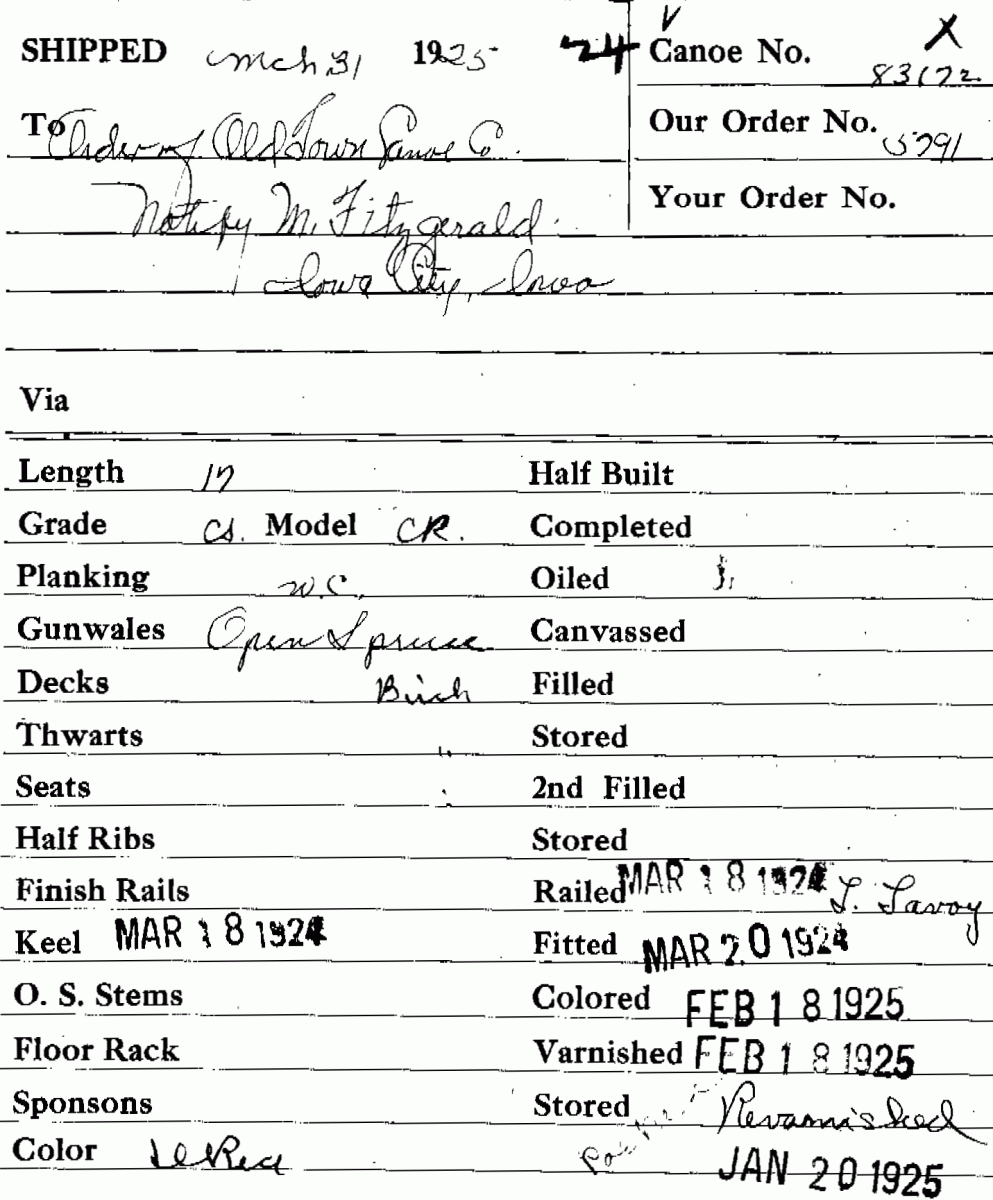 SHIPPED mch 31 1925 24 Canoe No. X 83172
To Order of Old Town Canoe Co. Our Order No. 5791
Notify M. Fitzgerald Your Order No.
Iowa City, Iowa
Via
Length 17 Half Built
Grade CS. Model CR. Completed
Planking W.C. Oiled
Gunwales Open Spruce Canvassed
Decks Birch Filled
Thwarts " Stored
Seats Half 2nd Filled
Half Ribs Stored
Finish Rails Railed MAR 18 1924 L. Lavoy
Keel MAR 18 1924 Fitted MAR 20 1924
O. S. Stems Colored FEB 18 1925
Floor Rack Varnished FEB 18 1925
Sponsons Stored Revarnished
Color Red JAN 20 1925